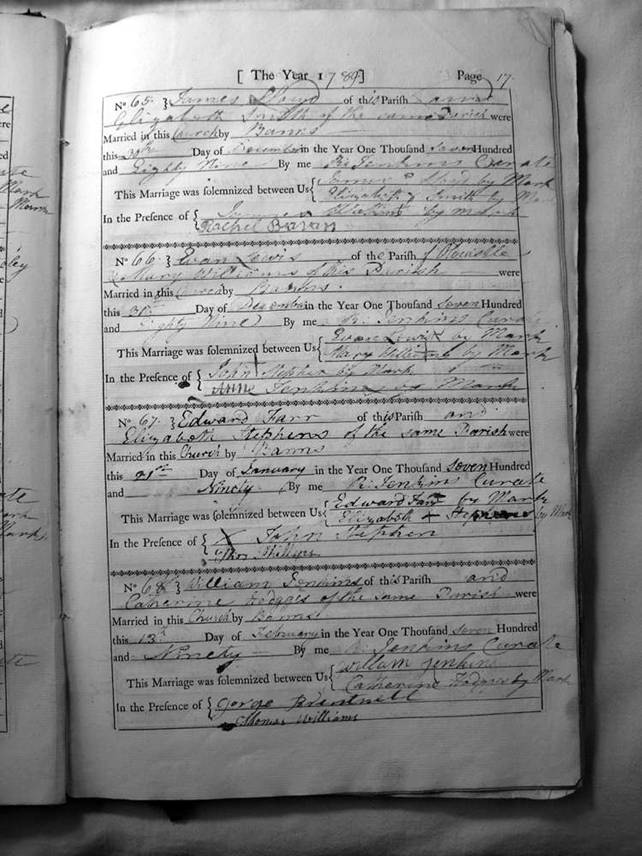 [ The Year 1789 ] Page 17.
No 65. } James Lloyd of this Parish and
Elizabeth Smith of the same Parish were
Married in this Church by Banns
this 30th Day of December in the Year One Thousand Seven Hundred
and Eighty Nine By me R. Jenkins Curate
This Marriage was solemnized between Us { James Lloyd by Mark
Elizabeth Smith by
In the Presence of { by mark
Rachel
No 66. } Evan Lewis of the Parish of
& Mary Williams of this Parish were
Married in this Church by Banns.
this 31st Day of December in the Year One Thousand Seven Hundred
and Eighty Nine By me R. Jenkins Curate
This Marriage was solemnized between Us { Evan Lewis by Mark
Mary Williams by Mark
In the Presence of { John Stephen by Mark
Anne Jenkins by Mark
No 67. } Edward Farr of this Parish and
Elizabeth Stephens of the same Parish were
Married in this Church by Banns
this 21st Day of January in the Year One Thousand Seven Hundred
and Ninety By me R. Jenkins Curate
This Marriage was solemnized between Us { Edward Farr by Mark
Elizabeth + Stephens by Mark
In the Presence of { X John Stephen
Thos Phillips
No 68. } William Jenkins of this Parish and
Catherine Hodges of the same Parish were
Married in this Church by Banns
this 13th Day of February in the Year One Thousand Seven Hundred
and Ninety By me R. Jenkins Curate
This Marriage was solemnized between Us { William Jenkins
Catherine Hodges by Mark
In the Presence of { George Brentnell
Thomas Williams